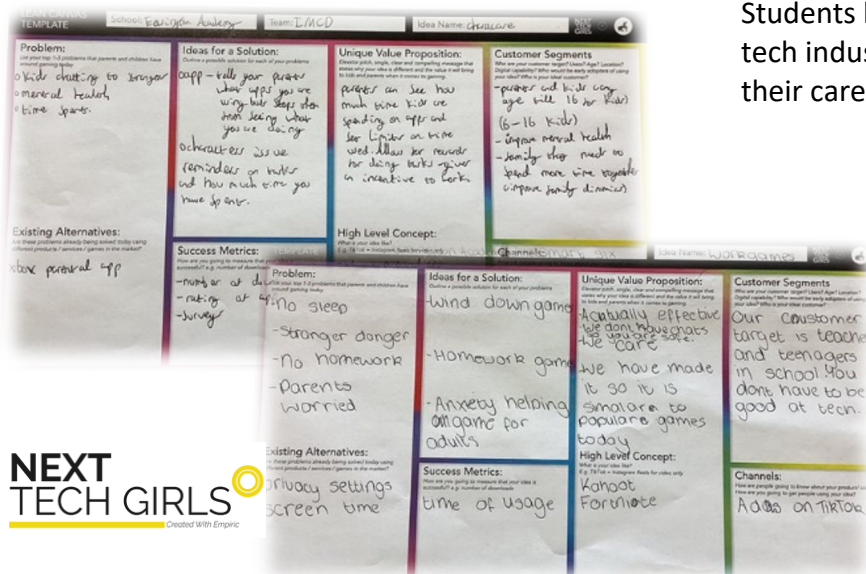 Students
tech indus
their care
LEAN CANVAS
TEMPLATE
School: Easington Academy
Team: IMCD
Idea Name: characare
Problem:
List your top 1-3 problems that parents and children have
around gaming today
kids chatting to stranger
mental health
time spent.
Existing Alternatives:
Are these problems already being solved today using
different products / services / games in the market?
xbox parental app
Ideas for a Solution:
Outline a possible solution for each of your problems
app - tells your parents
what apps you are
using but stops them
from seeing what
you are doing
characters issue
reminders on tasks
and how much time you
have spent.
Success Metrics:
- number of
- rating of
- surveys
Unique Value Proposition:
Elevator pitch, single, clear and compelling message that
states why your idea is different and the value it will bring
to kids and parents when it comes to gaming.
parents can see how
much time kids are
spending on apps and
set limits on time
used. Allow for rewards
for doing tasks - gives
an incentive to work
High Level Concept:
What is your idea like?
E.g. TikTok = Instagram Reels for video only
Customer Segments
Who are your customer target? Users? Age? Location?
Digital capability? Who would be early adopters of using
your idea? Who is your ideal customer?
- parents and kids (any
age till 16 for kids)
(6-16 kids)
- improve mental health
- family they need to
spend more time together
Channels:
Idea Name: Workgames
Problem:
List your top 1-3 problems that parents and children have
around gaming today
- No sleep
- Stranger danger
- No homework
- Parents
worried
Existing Alternatives:
Are these problems already being solved today using
different products / services / games in the market?
privacy settings
screen time
Ideas for a Solution:
Outline a possible solution for each of your problems
- Wind down game
- Homework game
- Anxiety helping
game for
adults
Success Metrics:
How are you going to measure that your idea is
successful? e.g. number of downloads
time of usage
Unique Value Proposition:
Elevator pitch, single, clear and compelling message that
states why your idea is different and the value it will bring
to kids and parents when it comes to gaming.
- Actually effective
We dont have chats
so you are safe.
- We care
- We have made
it so it is
similare to
populare games
today
High Level Concept:
What is your idea like?
E.g. TikTok = Instagram Reels for video only
Kahoot
Fortniote
Customer Segments
Who are your customer target? Users? Age? Location?
Digital capability? Who would be early adopters of
your idea? Who is your ideal customer?
Our coustomer
target is teache
and teenagers
in school. You
dont have to be
good at tech.
Channels:
How are people going to know about your product/
How are you going to get people using your idea?
Adds on TikTok
NEXT
TECH GIRLS
Created With Empiric